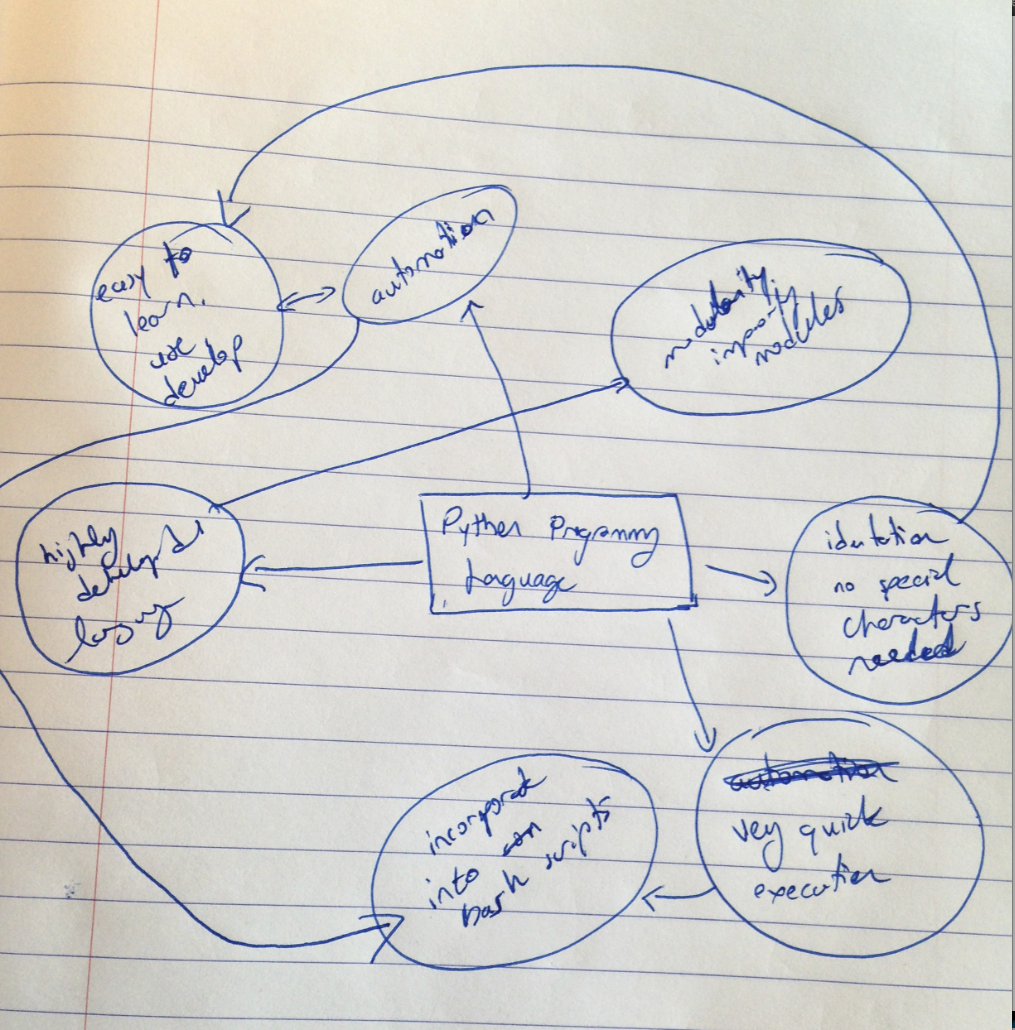 automation
easy to
learn.
use
develop
modularity.
import
modules
Python Programmy
Language
highly
language
identation
no special
characters
needed
automation
very quick
execution
incorporate
into
bash scripts